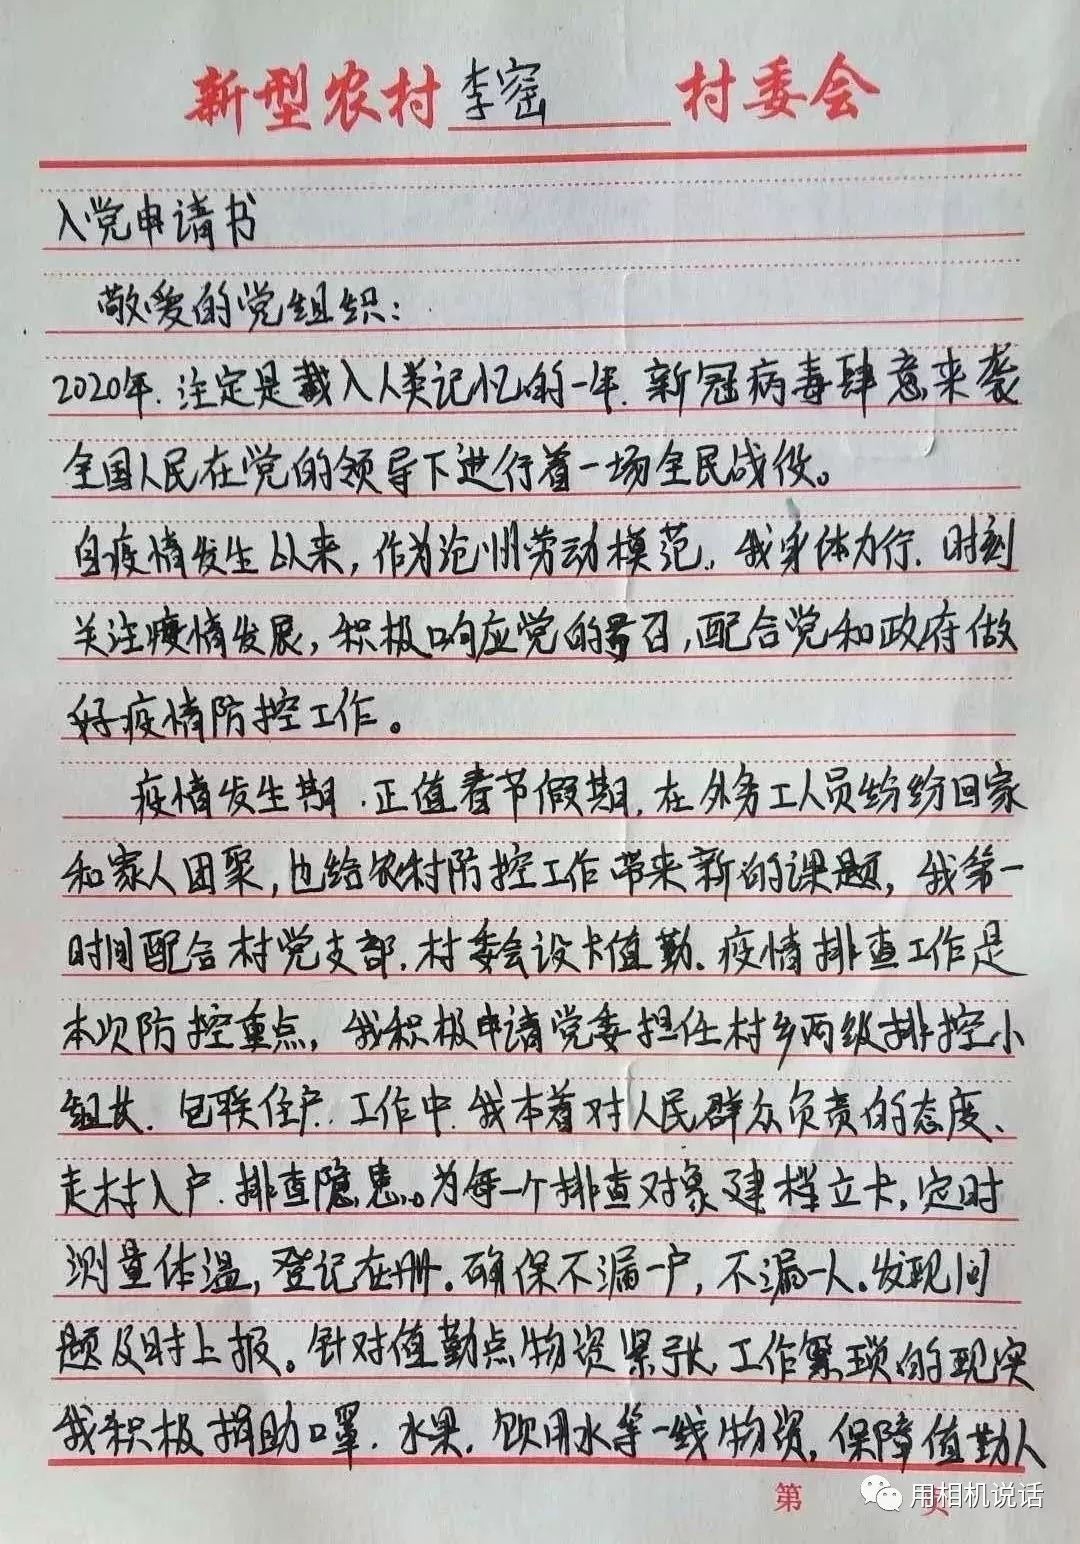 新型农村李窑村委会
入党申请书
敬爱的党组织：
2020年.注定是载入人类记忆的一年.新冠病毒肆意来袭
全国人民在党的领导下进行着一场全民战役。
自疫情发生以来，作为沧州劳动模范.，我身体力行.时刻
关注疫情发展，积极响应党的号召，配合党和政府做
好疫情防控工作。
疫情发生期.正值春节假期，在外务工人员纷纷回家
和家人团聚，也给农村防控工作带来新的课题，我第一
时间配合村党支部.村委会设卡值勤.疫情排查工作是
本次防控重点，我积极申请党委担任村乡两级排控小
组长.包联住户.工作中.我本着对人民群众负责的态度、
走村入户.排查隐患。为每一个排查对象建档立卡，定时
测量体温，登记在册.确保不漏一户，不漏一人.发现问
题及时上报。针对值勤点物资紧张，工作繁琐的现实
我积极捐助口罩.水果，饮用水等一线物资，保障值勤人
第 页
用相机说话